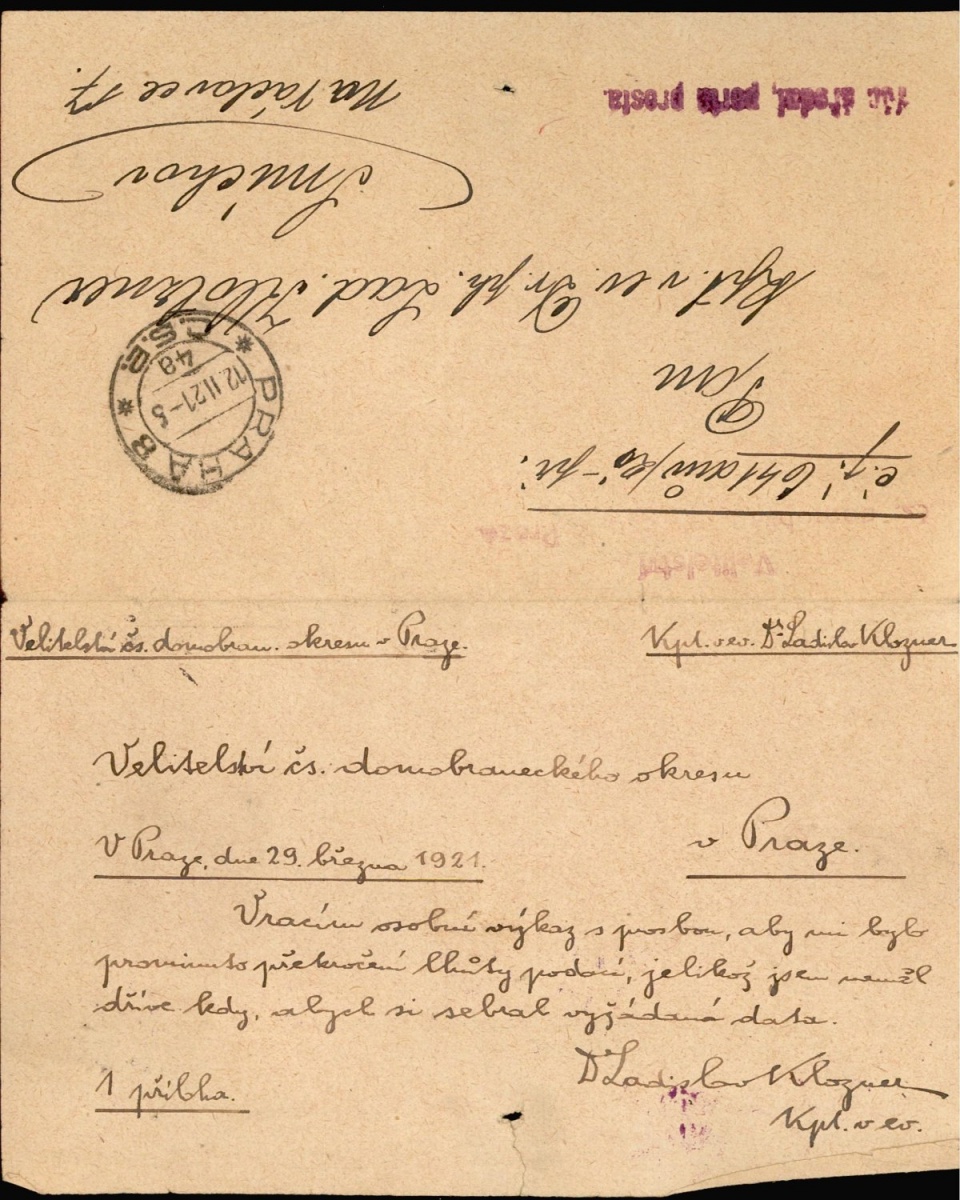 Vojen. úřední, porta prosta.
Pan
Kpt. v ev. Dr. ph. Lad. Klozner
Smíchov
Na Václavce 17.
PRAHA 8
Č.S.P.
12.II.21-5
4a
Velitelství
v Praze
Velitelství čs. domobran. okresu v Praze.
Kpt. v ev. Dr. Ladislav Klozner
Velitelství čs. domobraneckého okresu
v Praze.
V Praze, dne 29. března 1921.
Vracím osobní výkaz s prosbou, aby mi bylo
prominuto překročení lhůty podání, jelikož jsem neměl
dříve kdy, abych si sebral vyžádaná data.
1 příloha.
Dr Ladislav Klozner
Kpt. v ev.